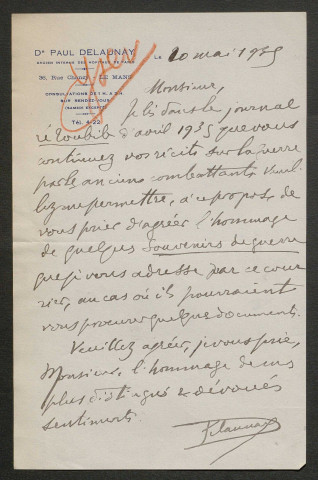 Dr PAUL DELAUNAY
ANCIEN INTERNE DES HOPITAUX DE PARIS
36, RUE - LE MANS
CONSULTATIONS DE 1 H. A 3 H.
SUR RENDEZ-VOUS
TÉL. 4-22
LE 10 mai 1935
Monsieur,
je lis dans le journal
d'avril 1935 que vous
continuez vos récits sur la guerre
par les anciens combattants. Veuil-
lez me permettre, à ce propos, de
vous prier d'agréer l'hommage
de quelques Souvenirs de guerre
que je vous adresse par ce cour-
rier, au cas où ils pourraient
vous procurer quelques documents.
Veuillez agréer, je vous prie,
Monsieur, l'hommage de mes
plus distingués & dévoués
sentiments.
P. Delaunay